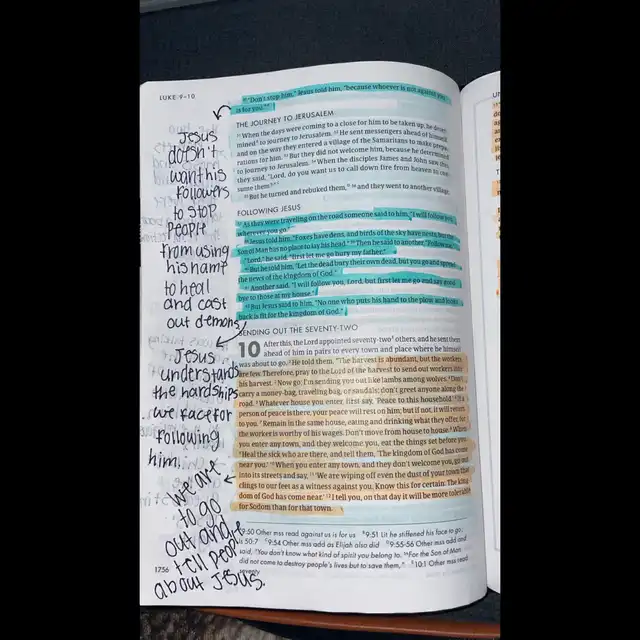 LUKE 9–10
50 "Don't stop him," Jesus told him, "because whoever is not against you
is for you."
THE JOURNEY TO JERUSALEM
51 When the days were coming to a close for him to be taken up, he deter-
mined to journey to Jerusalem. 52 He sent messengers ahead of himself,
and on the way they entered a village of the Samaritans to make prepa-
rations for him. 53 But they did not welcome him, because he determined
to journey to Jerusalem. 54 When the disciples James and John saw this,
they said, "Lord, do you want us to call down fire from heaven to con-
sume them?"
55 But he turned and rebuked them, 56 and they went to another village.
FOLLOWING JESUS
57 As they were traveling on the road someone said to him, "I will follow you
wherever you go."
58 Jesus told him, "Foxes have dens, and birds of the sky have nests, but the
Son of Man has no place to lay his head." 59 Then he said to another, "Follow me."
"Lord," he said, "first let me go bury my father."
60 But he told him, "Let the dead bury their own dead, but you go and spread
the news of the kingdom of God."
61 Another said, "I will follow you, Lord, but first let me go and say good-
bye to those at my house."
62 But Jesus said to him, "No one who puts his hand to the plow and looks
back is fit for the kingdom of God."
SENDING OUT THE SEVENTY-TWO
10 After this, the Lord appointed seventy-two others, and he sent them
ahead of him in pairs to every town and place where he himself
was about to go. 2 He told them, "The harvest is abundant, but the workers
are few. Therefore, pray to the Lord of the harvest to send out workers into
his harvest. 3 Now go; I'm sending you out like lambs among wolves. 4 Don't
carry a money-bag, traveling bag, or sandals; don't greet anyone along the
road. 5 Whatever house you enter, first say, 'Peace to this household.' 6 If a
person of peace is there, your peace will rest on him; but if not, it will return
to you. 7 Remain in the same house, eating and drinking what they offer, for
the worker is worthy of his wages. Don't move from house to house. 8 When
you enter any town, and they welcome you, eat the things set before you.
9 Heal the sick who are there, and tell them, 'The kingdom of God has come
near you.' 10 When you enter any town, and they don't welcome you, go out
into its streets and say, 11 'We are wiping off even the dust of your town that
clings to our feet as a witness against you. Know this for certain: The king-
dom of God has come near.' 12 I tell you, on that day it will be more tolerable
for Sodom than for that town.
9:50 Other mss read against us is for us 9:51 Lit he stiffened his face to go;
Is 50:7 9:54 Other mss add as Elijah also did 9:55-56 Other mss add and
said, "You don't know what kind of spirit you belong to. 56 For the Son of Man
did not come to destroy people's lives but to save them," 10:1 Other mss read
seventy
1756
Jesus
doesn't
want his
followers
to stop
people
from using
his name
to heal
and cast
out demons
Jesus
understands
the hardships
we face for
following
him.
we are
to go
out and
tell people
about Jesus.